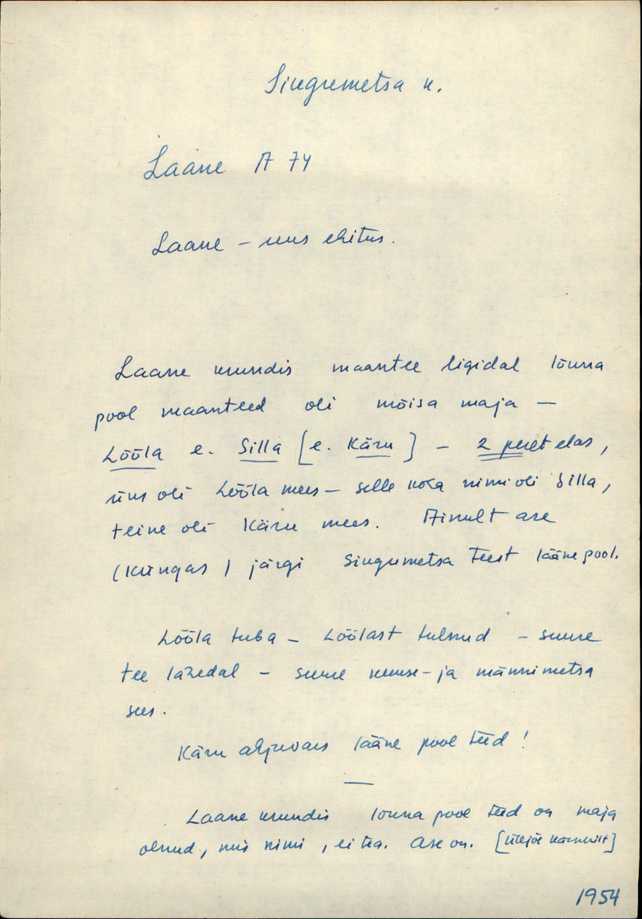 Singumetsa k.
Laane A 74
Laane – uus ehitus.
Laane krundis maantee ligidal lõuna
pool maanteed oli mõisa maja –
Lõõla e. Silla [e. Käru] – 2 peret elas,
üks oli Lõõla mees – selle koha nimi oli Silla,
teine oli Käru mees. Ainult ase
(küngas) järgi Singumetsa teest lääne pool.
Lõõla tuba – Lõõlast tulnud – suure
tee lähedal – suure kuuse- ja männimetsa
sees.
Käru ahjuvare lääne pool teed!
Laane krundis lõuna pool teed on maja
olnud, mis nimi, ei tea. Ase on.
1954